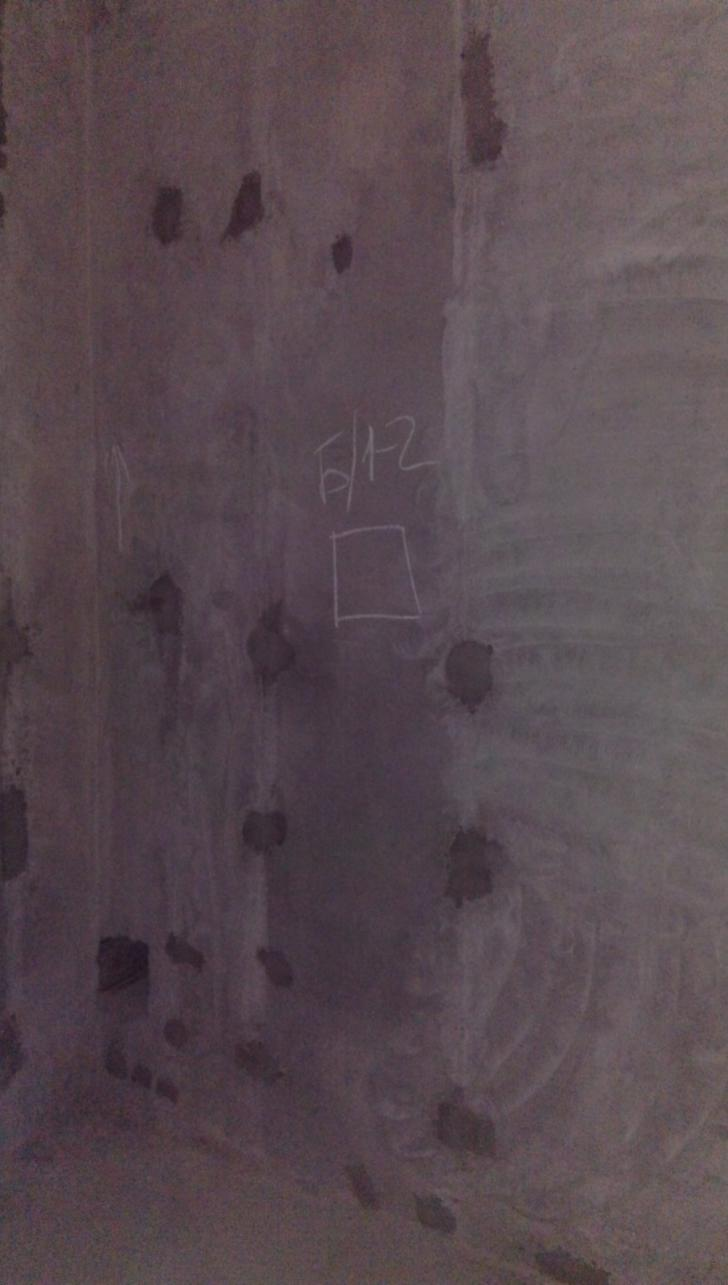 Б/1-2